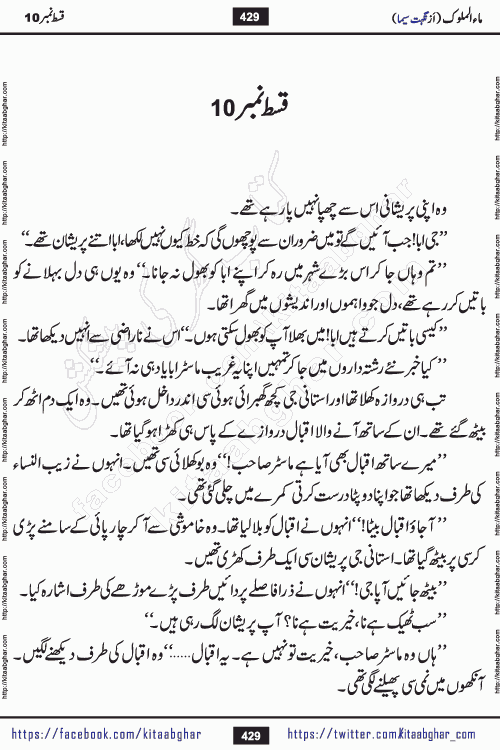 ماء الملوک (از نگہت سیما)
429
قسط نمبر 10
قسط نمبر 10
وہ اپنی پریشانی اس سے چھپا نہیں پا رہے تھے۔
’’جی ابا! جب آئیں گے تو میں ضرور ان سے پوچھوں گی کہ خط کیوں نہیں لکھا، ابا اتنے پریشان تھے۔‘‘
’’تم وہاں جا کر اس بڑے شہر میں رہ کر اپنے ابا کو بھول نہ جانا۔‘‘ وہ یوں ہی دل بہلانے کو
باتیں کر رہے تھے، دل جو واہموں اور اندیشوں میں گھرا تھا۔
’’کیسی باتیں کرتے ہیں ابا! میں بھلا آپ کو بھول سکتی ہوں۔‘‘ اس نے ناراضی سے انہیں دیکھا تھا۔
’’کیا خبر نئے رشتہ داروں میں جا کر تمہیں اپنا یہ غریب ماسٹر ابا یاد ہی نہ آئے۔‘‘
تب ہی دروازہ کھلا تھا اور استانی جی کچھ گھبرائی ہوئی سی اندر داخل ہوئی تھیں۔ وہ ایک دم اٹھ کر
بیٹھ گئے تھے۔ ان کے ساتھ آنے والا اقبال دروازے کے پاس ہی کھڑا ہو گیا تھا۔
’’میرے ساتھ اقبال بھی آیا ہے ماسٹر صاحب!‘‘ وہ بوکھلائی سی تھیں۔ انہوں نے زیب النساء
کی طرف دیکھا تھا جو اپنا دوپٹا درست کرتی کمرے میں چلی گئی تھی۔
’’آجاؤ اقبال بیٹا!‘‘ انہوں نے اقبال کو بلا لیا تھا۔ وہ خاموشی سے آ کر چارپائی کے سامنے پڑی
کرسی پر بیٹھ گیا تھا۔ استانی جی پریشان سی ایک طرف کھڑی تھیں۔
’’بیٹھ جائیں آپا جی!‘‘ انہوں نے ذرا فاصلے پر دائیں طرف پڑے موڑھے کی طرف اشارہ کیا۔
’’سب ٹھیک ہے نا، خیریت ہے نا؟ آپ پریشان لگ رہی ہیں۔‘‘
’’ہاں وہ ماسٹر صاحب، خیریت تو نہیں ہے۔ یہ اقبال......‘‘ وہ اقبال کی طرف دیکھنے لگیں۔
آنکھوں میں نمی سی پھیلنے لگی تھی۔
http://kitaabghar.com
https://facebook.com/kitaabghar
429
https://twitter.com/kitaabghar_com